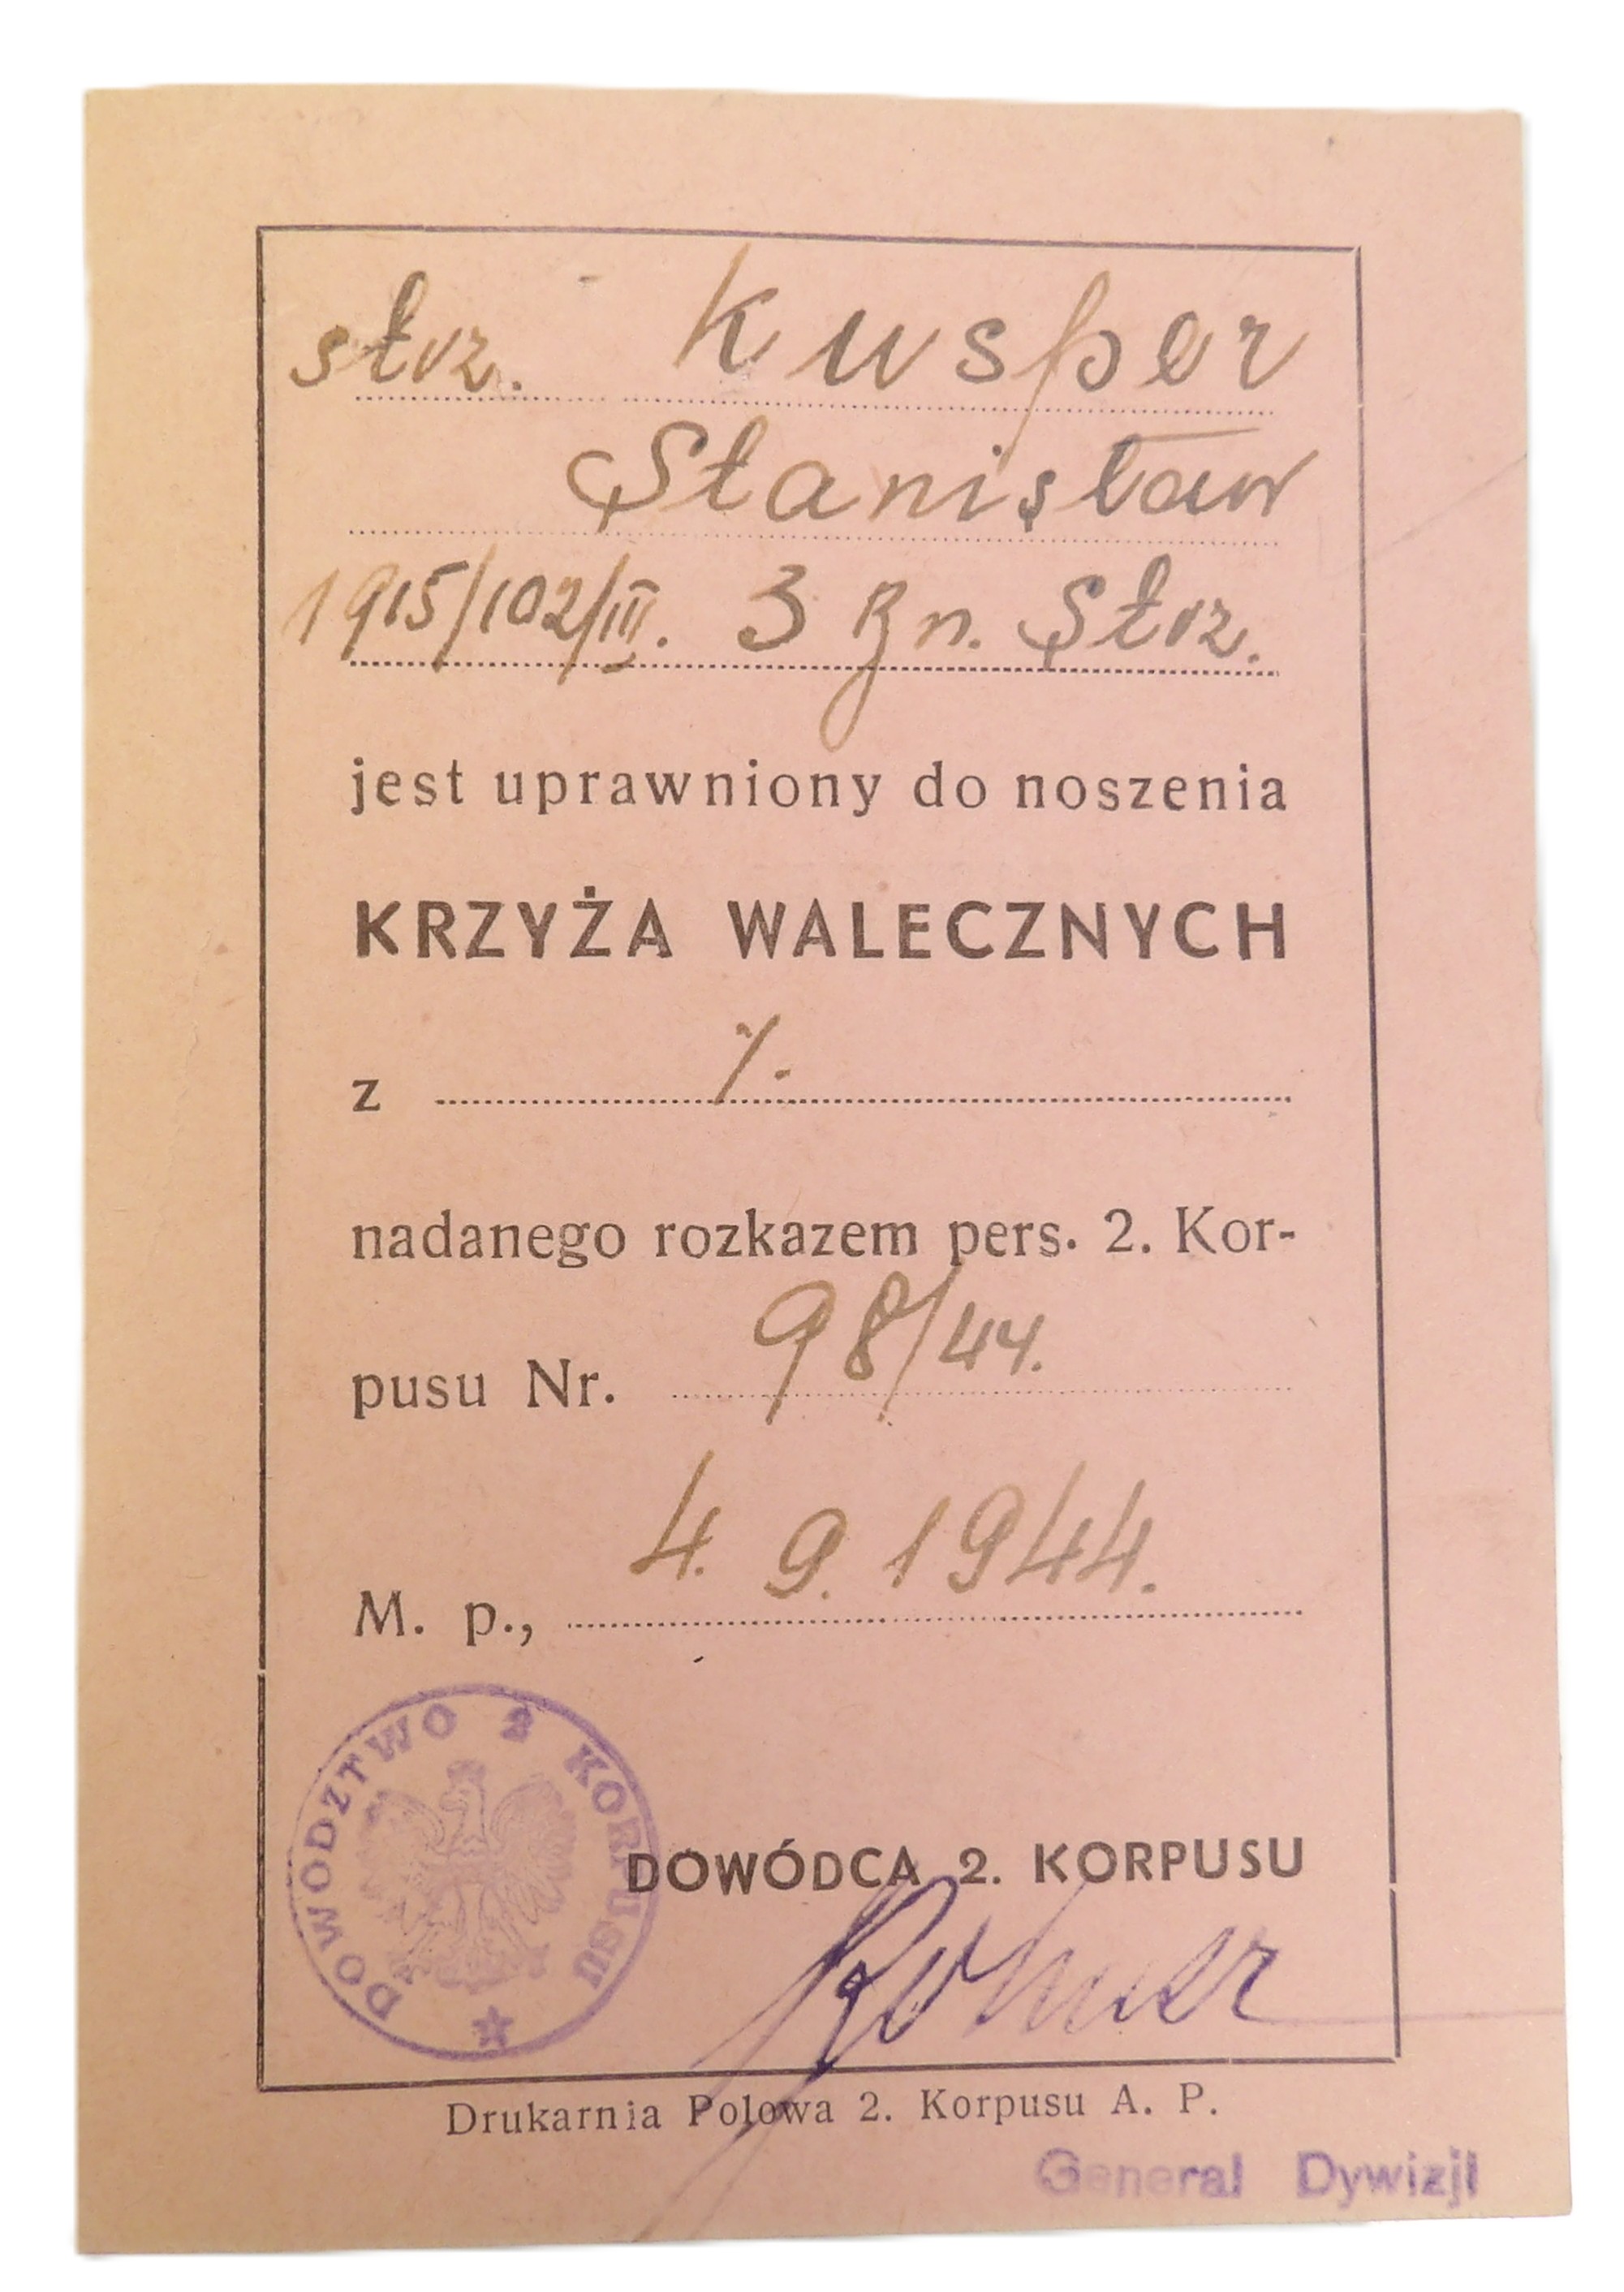 strz. Kusper
Stanisław
1915/102/III. 3 Bn. Strz.
jest uprawniony do noszenia
KRZYŻA WALECZNYCH
z ./.
nadanego rozkazem pers. 2. Kor-
pusu Nr. 98/44.
M. p., 4. 9. 1944.
DOWÓDZTWO 2 KORPUSU
DOWÓDCA 2. KORPUSU
Drukarnia Polowa 2. Korpusu A. P.
General Dywizji